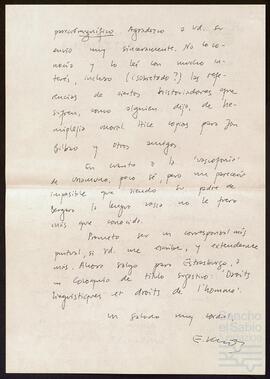 magnífico. Agradezco a Vd. su
envío muy sinceramente. No lo co-
nocía y lo leí con mucho in-
terés, incluso (¿sobretodo?) las refe-
rencias de ciertos historiadores que
sufren, como alguien dijo, de he-
miplejia moral. Hice copias para Jon
Bilbao y otros amigos.
En cuanto a lo "vascofonía"
de Unamuno, poco sé, pero me parece
imposible que siendo su padre de
Bergara la lengua vasca no le fuera
más que conocida.
Prometo ser un corresponsal más
puntual, si Vd. me escribe, y extenderme
más. Ahora salgo para Estrasburgo, a
un Coloquio de título sugestivo: "Droits
linguistiques et droits de l'homme".
Un saludo muy cordial
E.
Sancho
el Sabio